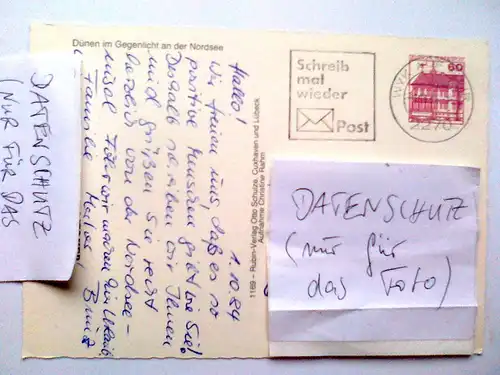 Dünen im Gegenlicht an der Nordsee
1.10.84
Hallo!
Wir freuen uns, daß es so
positive Menschen gibt wie Sie!
Deshalb schreiben wir Ihnen
und grüßen Sie recht
herzlich von der Nordsee-
insel Föhr wir machen hier Urlaub
Familie
1169 - Rubin-Verlag Otto Schulze, Cuxhaven und Lübeck
Aufnahme Christine Rahm
Schreib
mal
wieder
Post
60
2270
DATENSCHUTZ
(NUR FÜR DAS
DATENSCHUTZ
(nur für
das Foto)